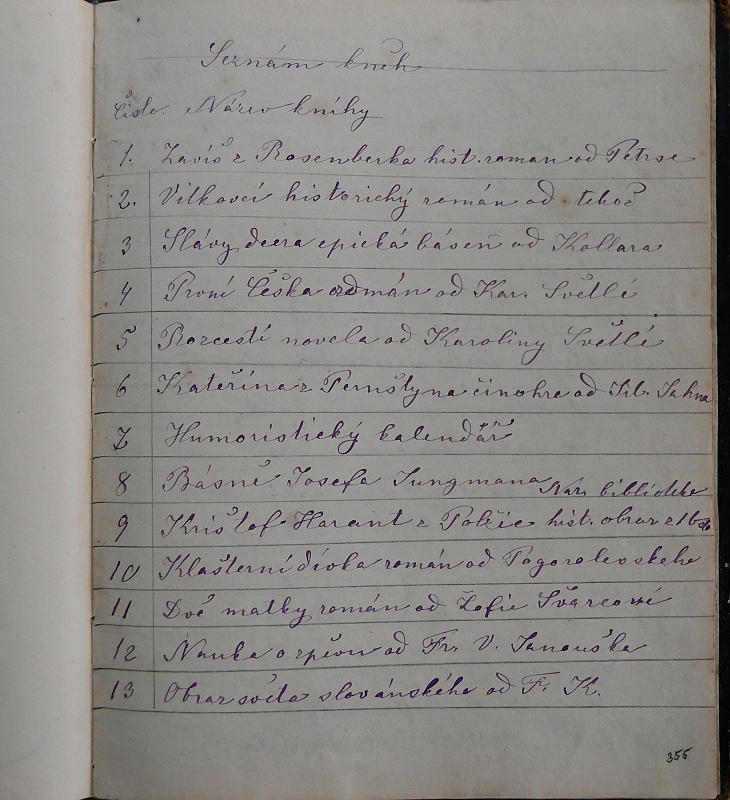 Seznám kněh
Čísle. Název kníhy
1. Zaviš z Rosenberka hist. roman od Petrse
2. Vítkovcí historický román od tehož
3 Slávy dcera epická báseň od Kollara
4 První Češka román od Kar. Světlé
5 Rozcestí novela od Karoliny Světlé
6 Kateřina z Pernštyna činohre od Jil. Jahna
7 Humoristický kalendář
8 Básně Josefa Jungmana Nar. biblioteke
9 Krištof Harant z Polžic hist. obraz z
10 Klašterní dívka román od Pogorolevskeho
11 Dvě matky román od Žofie Švarcoví
12 Nauka o zpěvu od Fr. V. Janouška
13 Obraz světa slovánského od F. K.
355